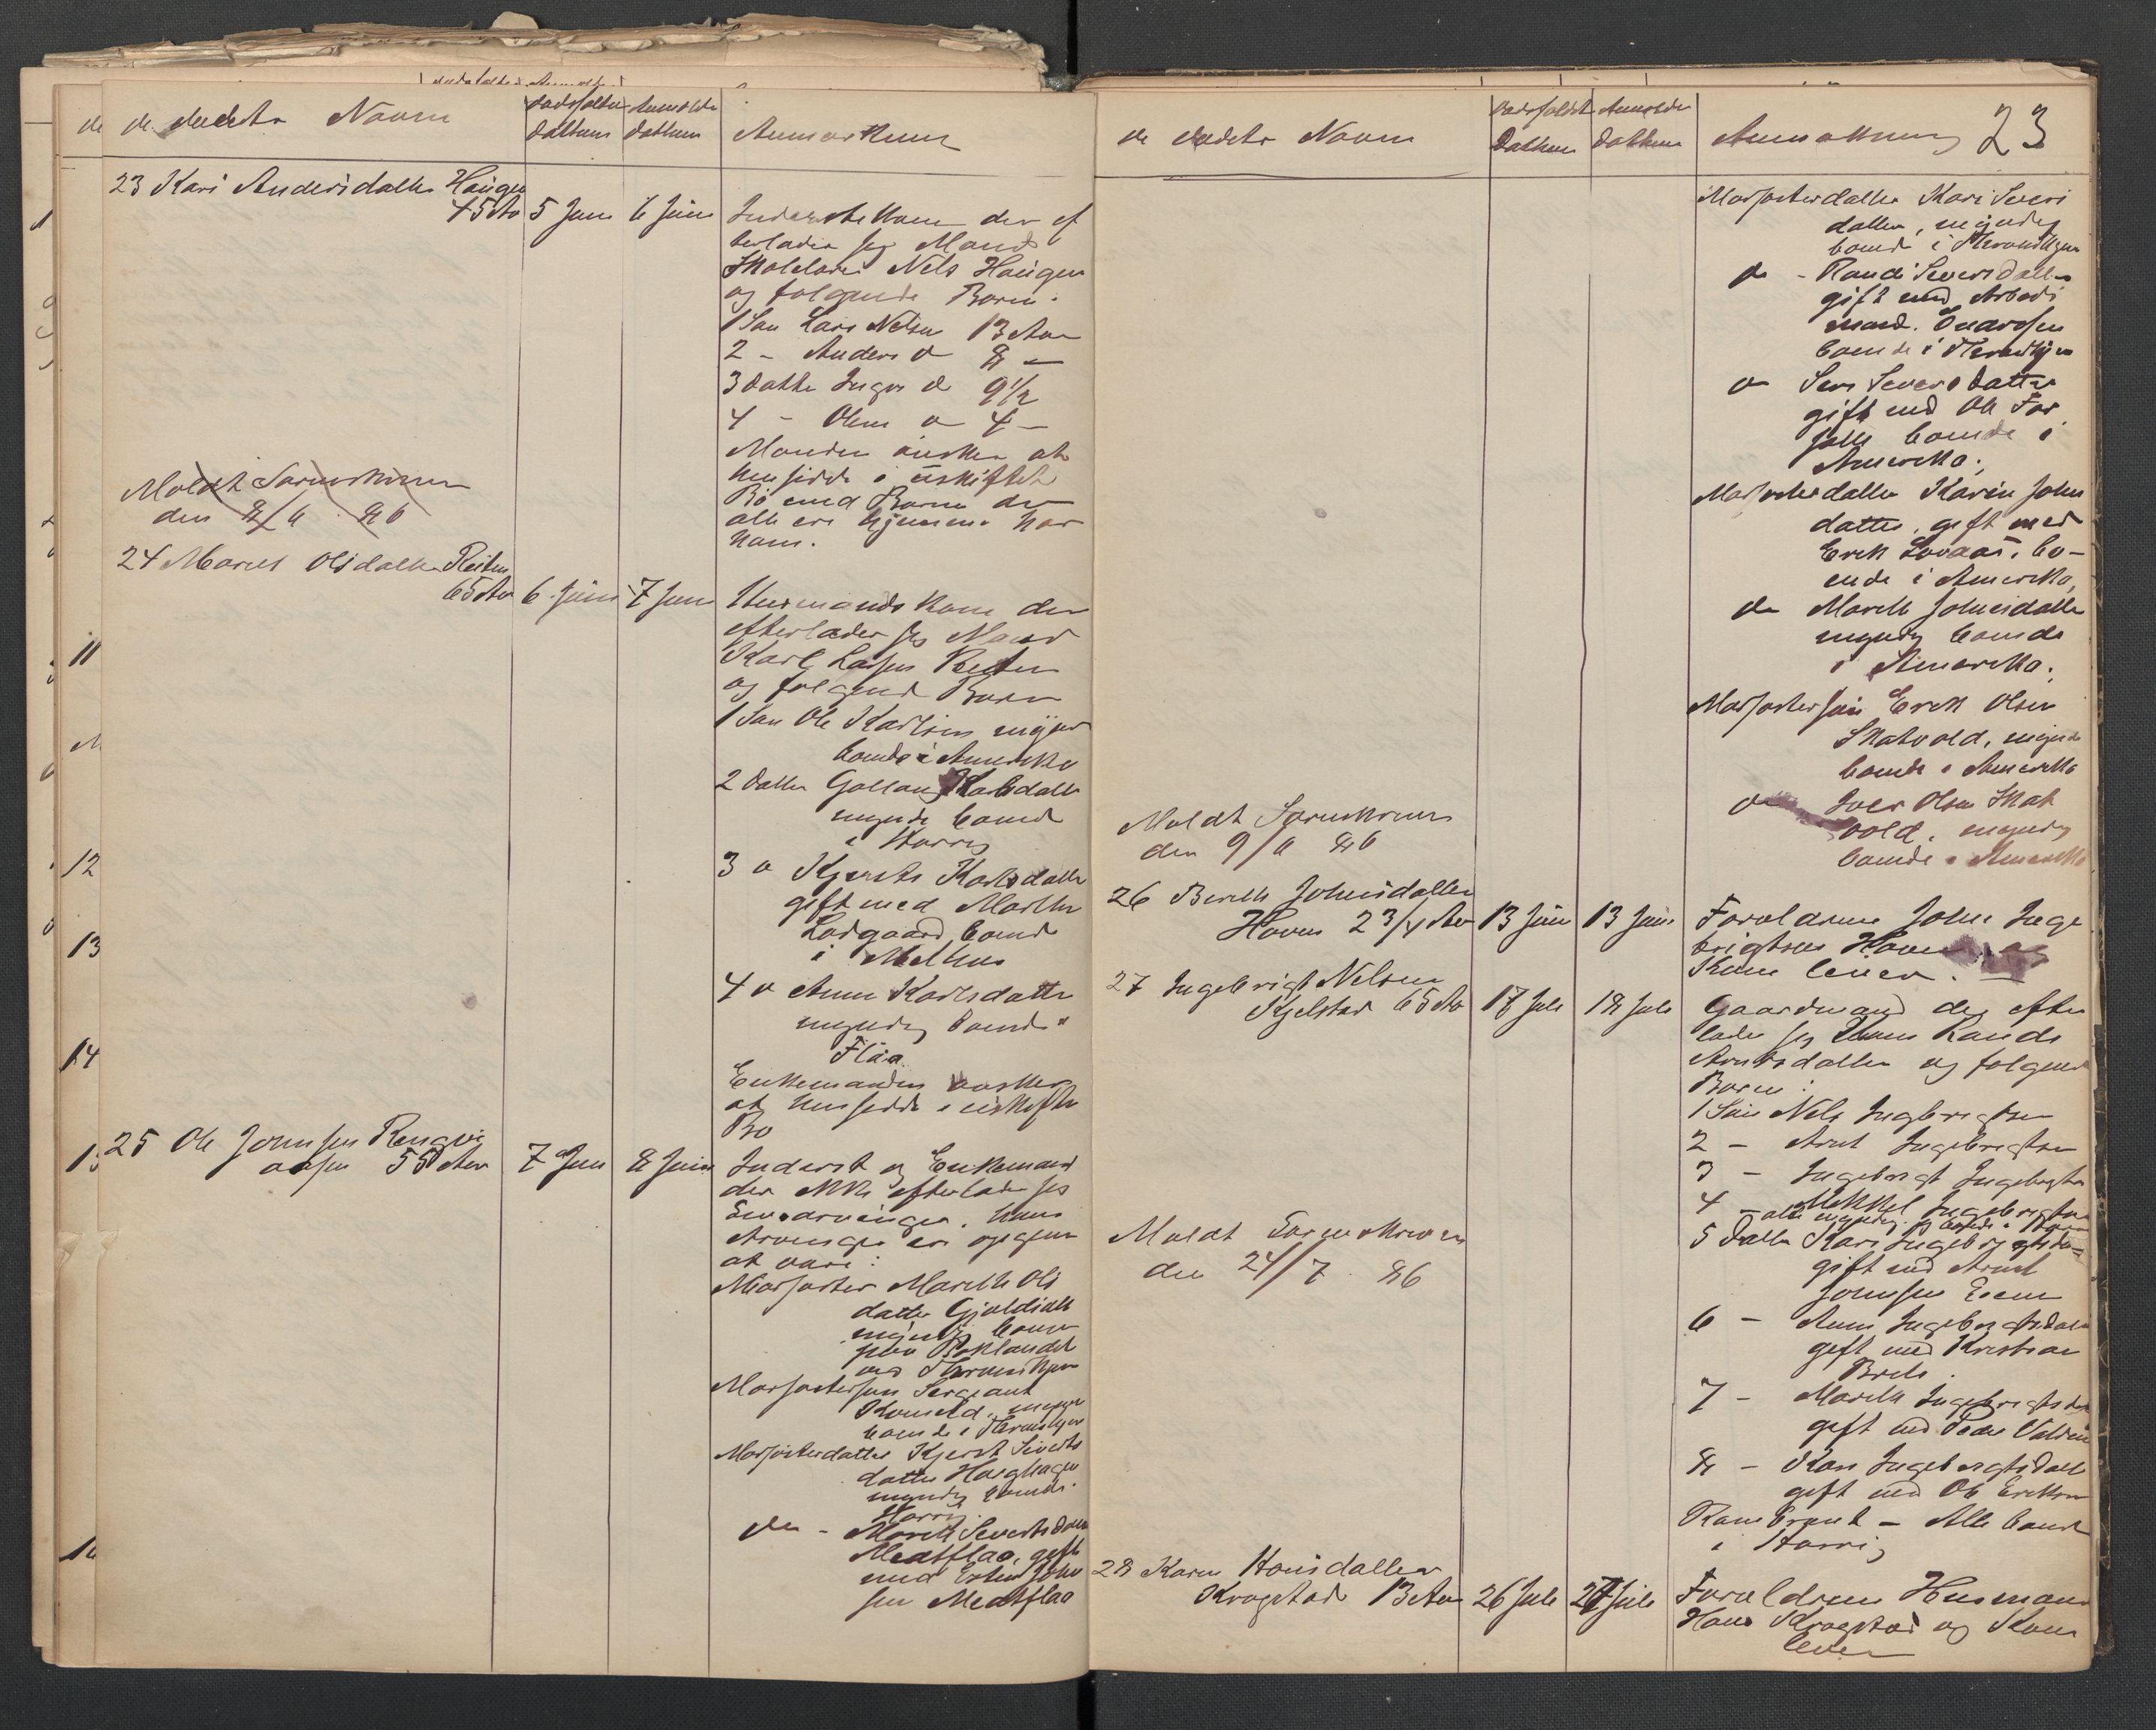 de dødets Navn
dødsfaldets Anmeldts
Dathum dathum
Anmerkning
23 Kari Andersdatter Haugen
45 Aar 5 Juni 6 Juni
Inderstekone der ef
terlader sig Mand
Skolelærer Nels Haugen
og følgende Børn.
1 Søn Lars Nelsen 13 Aar
2 - Anders do 8 -
3 datter Inger do 9 1/2
4 - Oline do 4 -
Manden ønsker at
hensidde i uskiftet
Bo med Børn der
alle ere hjemme hos
ham.
Meldt Sørenskriveren
den 8/6 86
24 Marit Olsdatter Reiten
65 Aar 6 Juni 7 Juni
Husmandskone der
efterlader sig Mand
Karl Larsen Reiten
og følgende Børn
1 Søn Ole Karlsen myndig
boende i Amerika
2 datter Gollaug Karlsdatter
myndig boende
i Horrig
3 do Kjersti Karlsdatter
gift med Marthin
Lodgaard boende
i Melhus
4 do Anne Karlsdatter
myndig boende i
Flaa.
Enkemanden ønsker
at hensidde i uskiftet
Bo
25 Ole Johnsen Rengvi
aasen 55 Aar 7 Juni 8 Juni
Inderst og Enkemand
der ikke efterlader sig
Livsarvinger. hans
Arvinger er opgivne
at være:
Morsøster Marith Ols
datter Gjøldials
myndig boende
paa Baklandet
ved Thronhjem
Morsøstersøn Sergeant
myndig
boende i Thronhjem
Morsøsterdatter Kjersti Siverts
datter Haughagen
myndig boende i
Horrig
do - Marit Sivertsdatter
Medtflaa, gift
med Esten John
sen Medtflaa
de dødets Navn
Dødsfaldets Anmeldts
Dathum Dathum
Anmerkning 23
Morsøsterdatter Kari Siverts
datter, myndig
boende i Thronhjem
do - Randi Siversdatter
gift med Arbeids
mand. Enarsen
boende i Thronhjem
do Seri Siversdatter
gift med Ole For
salle boende i
Amerika.
Morsøsterdatter Karin Johns
datter, gift med
Erik Lovaas. bo-
ende i Amerika,
do Marith Johnsdatter
myndig boende
i Amerika.
Morsøstersøn Erik Olsen
Skatvold, myndig
boende i Amerika
do Iver Olsen Skat
vold. myndig
boende i Amerika
Meldt Sørenskriveren
den 9/6 86
26 Berith Johnsdatter
Hoven 2 3/4 Aar 13 Juni 13 Juni
Forældrene John Inge
brigtsen Hoven og
Kone lever.
27 Ingebrigt Nelsen
Kjelstad 65 Aar 17 Juli 18 Juli
Gaardmand der efter
lader sig Kone Randi
Arntsdatter og følgende
Børn:
1 Søn Nels Ingebrigtsen
2 - Arnt Ingebrigtsen
3 - Ingebrigt Ingebrigtsen
4 - Mikkel Ingebrigtsen
- alle myndig og boende i Horrig
5 Datter Kari Ingebrigtsda-
gift med Arnt
Johnsen Eenen
6 - Anne Ingebrigtsdatter
gift med Kristian
Brek.
7 - Marith Ingebrigtsdat
gift med Peder Valdum
8 - Karen Ingebrigtsdatt
gift med Ole Eriksen
Rambraut - Alle boende
i Horrig
Meldt Sørenskriveren
den 24/7. 86
28 Karen Hansdatter
Krogstad 13 Aar 26 Juli 27 Juli
Forældrene Husmand
Hans Krogstad og Kone
lever
11
12
13
14